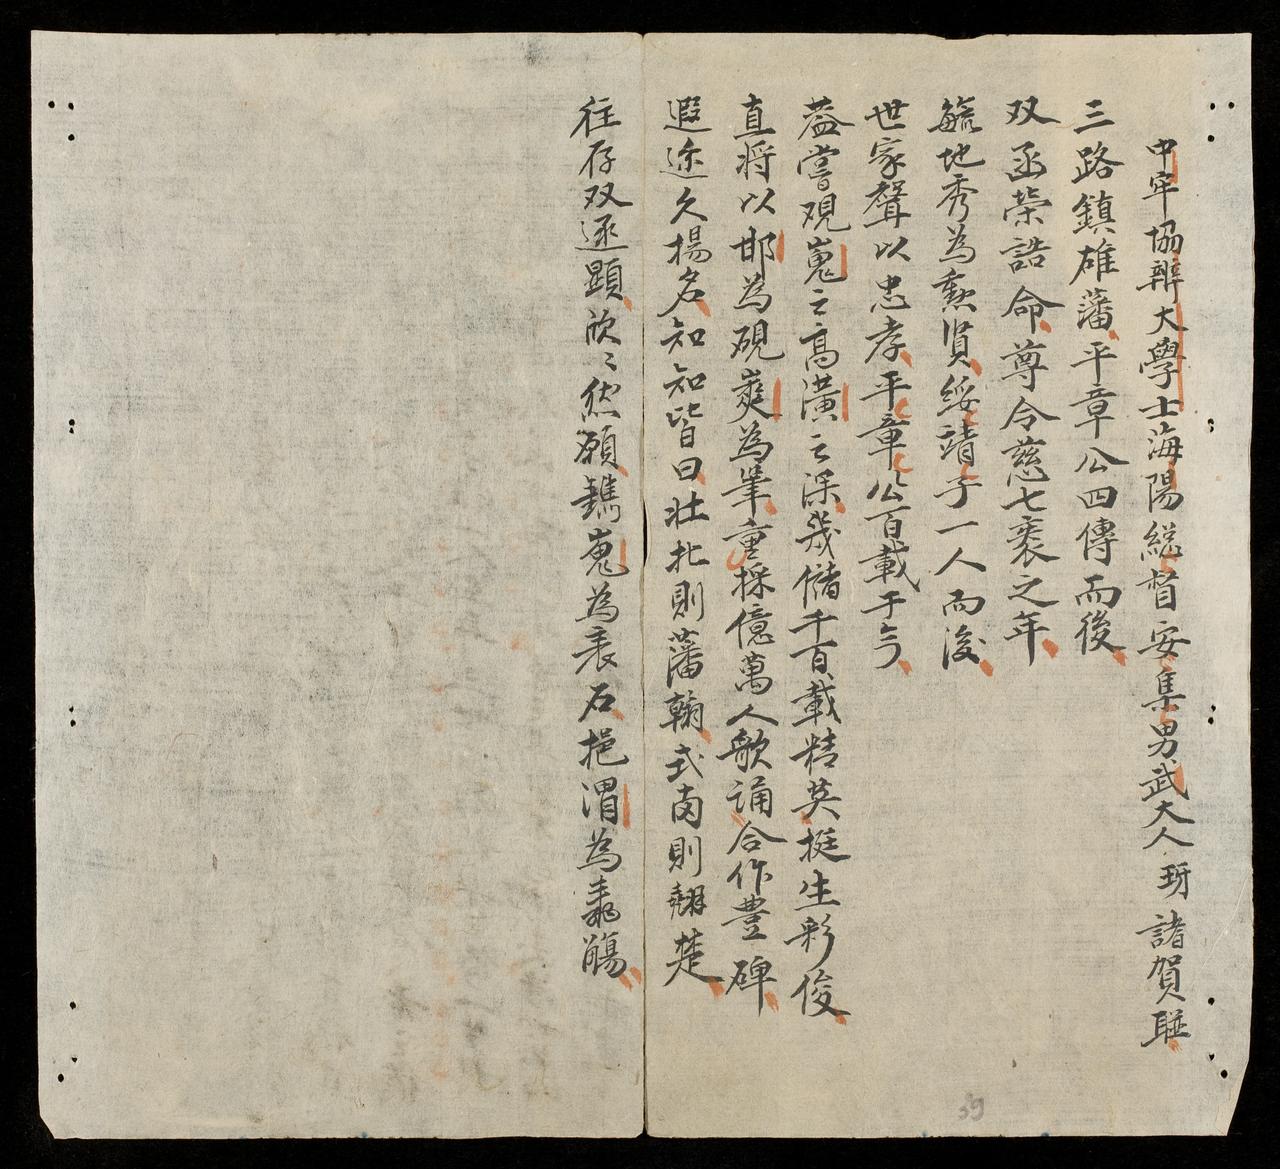 中牢協辦大學士海陽総督安集男武大人玡諸賀聯
三路鎮雄藩平章公四傳而後
双函荣誥命尊令慈七袠之年
毓地秀為勲賢綏靖子一人而後
世家聲以忠孝平章公百載于今
葢嘗观嵬之高潢之深幾儲千百載精英挺生彩俊
直将以邯為硯㠔為筆重採億萬人歌誦合作豊碑
遐迩久揚名知知皆曰壯北則藩翰式南則翹楚
往存双逐顕欣〻然願鐫嵬為表石挹渭為壽觴
39